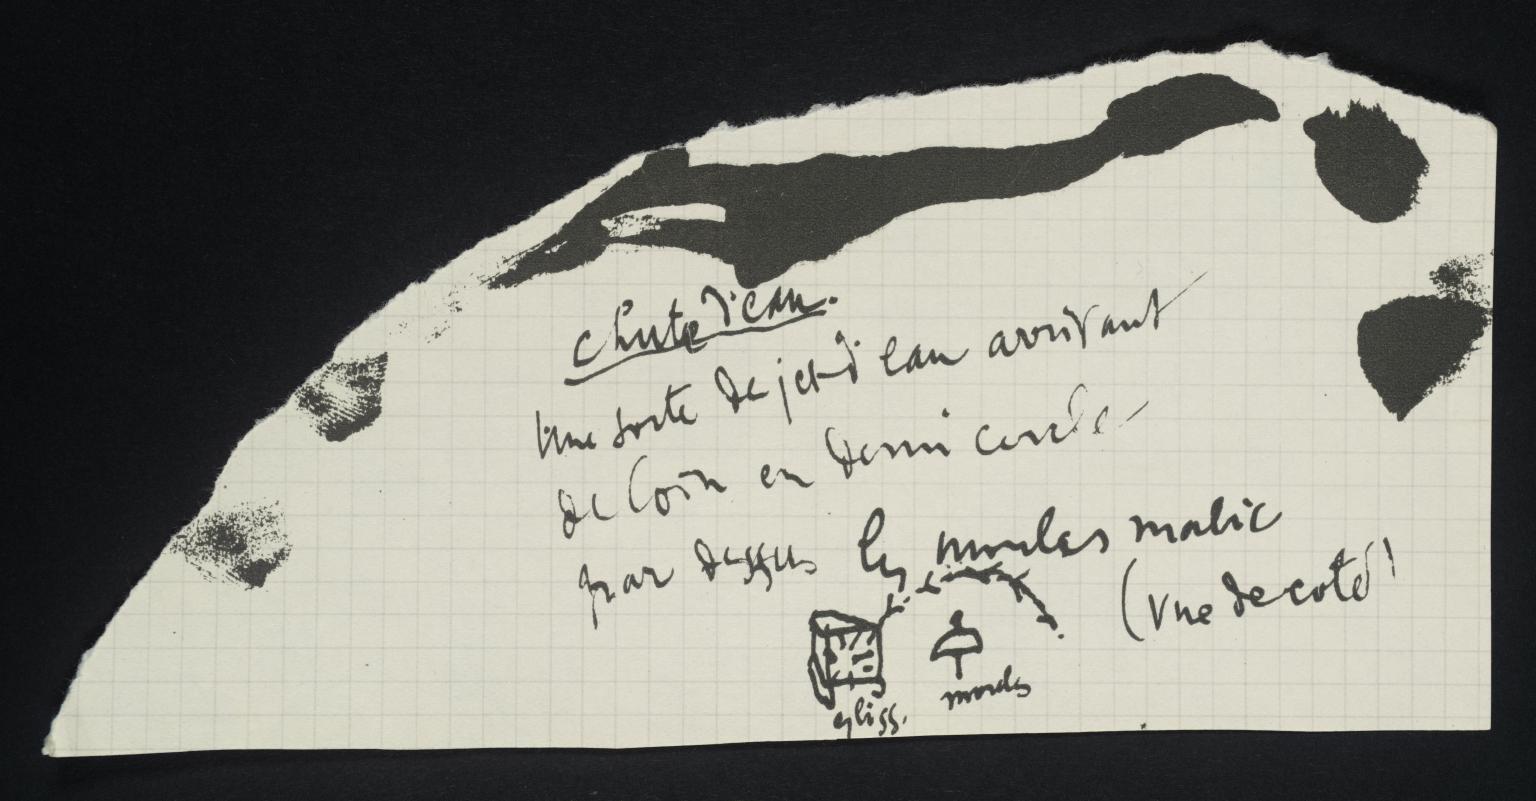 Chute d'eau.
Une sorte de jet d'eau arrivant
de loin en demi cercle –
par dessus les moules malic
(vue de coté)
gliss.
moules